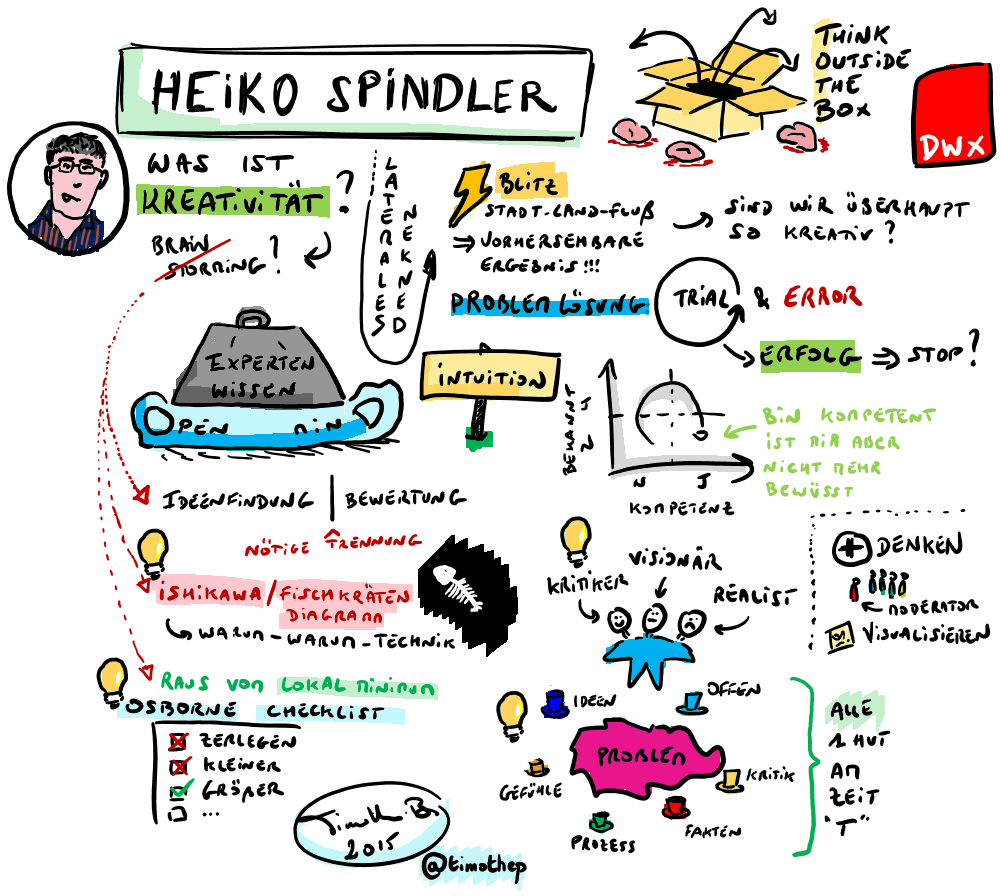 HEIKO SPINDLER
THINK
OUTSIDE
THE
BOX
DWX
WAS IST
KREATIVITÄT?
BRAIN
STORMING?
LATERALES
DENKEN
BLITZ
STADT-LAND-FLUß
⇒ VORHERSEHBARE
ERGEBNIS!!!
→ SIND WIR ÜBERHAUPT
SO KREATIV?
PROBLEM LÖSUNG
TRIAL & ERROR
ERFOLG ⇒ STOP?
EXPERTEN
WISSEN
PEN MIN
INTUITION
BEKANNT
N J
N J
KOMPETENZ
BIN KOMPETENT
IST MIR ABER
NICHT MEHR
BEWÜSST
IDEENFINDUNG | BEWERTUNG
NÖTIGE TRENNUNG
ISHIKAWA / FISCHKRÄTEN
DIAGRAMM
WARUM-WARUM-TECHNIK
RAUS VOM LOKAL MINIMUM
OSBORNE CHECKLIST
ZERLEGEN
KLEINER
GRÖßER
...
VISIONÄR
KRITIKER
REALIST
+ DENKEN
MODERATOR
VISUALISIEREN
IDEEN
OFFEN
PROBLEM
KRITIK
GEFÜHLE
FAKTEN
PROZESS
ALLE
1 HUT
AM
ZEIT
"T"
Timothée B.
2015
@timothep